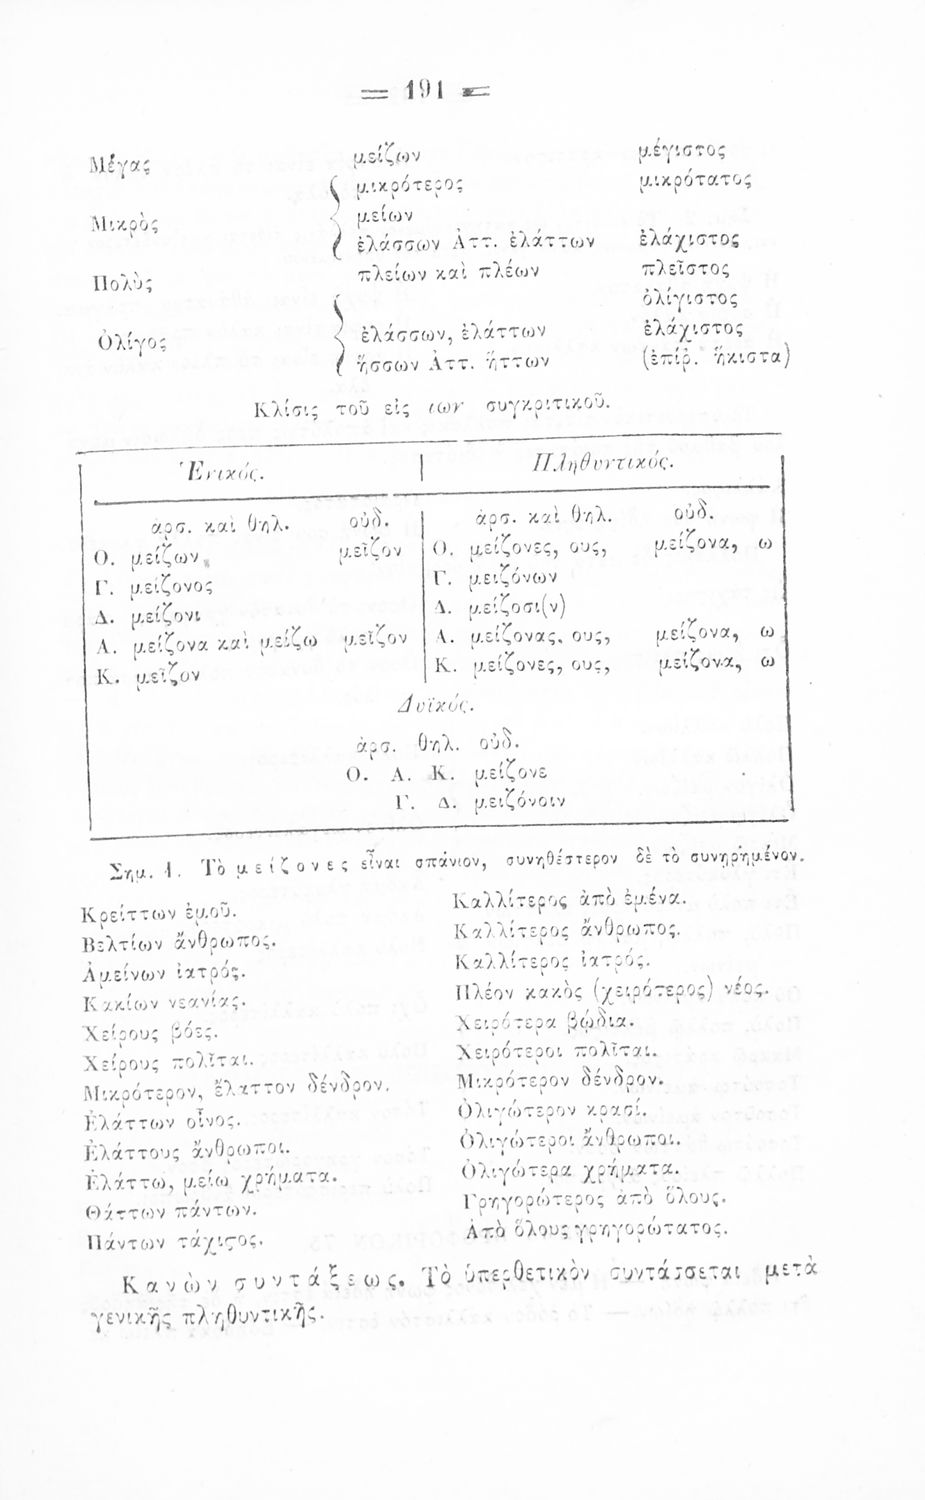 = 191 =
Μέγας μείζων μέγιστος
μικρότερος μικρότατος
Μικρὸς μείων
ἐλάσσων Ἀττ. ἐλάττων ἐλάχιστος
Πολὺς πλείων καὶ πλέων πλεῖστος
ὀλίγιστος
Ὀλίγος ἐλάσσων, ἐλάττων ἐλάχιστος
ἥσσων Ἀττ. ἥττων (ἐπίῤ. ἥκιστα)
Κλίσις τοῦ εἰς ιων συγκριτικοῦ.
Ἑνικός. Πληθυντικός.
ἀρσ. καὶ θηλ. οὐδ. ἀρσ. καὶ θηλ. οὐδ.
Ο. μείζων, μεῖζον Ο. μείζονες, ους, μείζονα, ω
Γ. μείζονος Γ. μειζόνων
Δ. μείζονι Δ. μείζοσι(ν)
Α. μείζονα καὶ μείζω μεῖζον Α. μείζονας, ους, μείζονα, ω
Κ. μεῖζον Κ. μείζονες, ους, μείζονα, ω
Δυϊκός.
ἀρσ. θηλ. οὐδ.
Ο. Α. Κ. μείζονε
Γ. Δ. μειζόνοιν
Σημ. 1. Τὸ μείζονες εἶναι σπάνιον, συνηθέστερον δὲ τὸ συνῃρημένον.
Κρείττων ἐμοῦ. Καλλίτερος ἀπὸ ἐμένα.
Βελτίων ἄνθρωπος. Καλλίτερος ἄνθρωπος.
Ἀμείνων ἰατρός. Καλλίτερος ἰατρός.
Κακίων νεανίας. Πλέον κακὸς (χειρότερος) νέος.
Χείρους βόες. Χειρότερα βώδια.
Χείρους πολῖται. Χειρότεροι πολῖται.
Μικρότερον, ἔλαττον δένδρον. Μικρότερον δένδρον.
Ἐλάττων οἶνος. Ὀλιγώτερον κρασί.
Ἐλάττους ἄνθρωποι. Ὀλιγώτεροι ἄνθρωποι.
Ἐλάττω, μείω χρήματα. Ὀλιγώτερα χρήματα.
Θάττων πάντων. Γρηγορώτερος ἀπὸ ὅλους.
Πάντων τάχιστος. Ἀπὸ ὅλους γρηγορώτατος.
Κανὼν συντάξεως. Τὸ ὑπερθετικὸν συντάσσεται μετὰ
γενικῆς πληθυντικῆς.